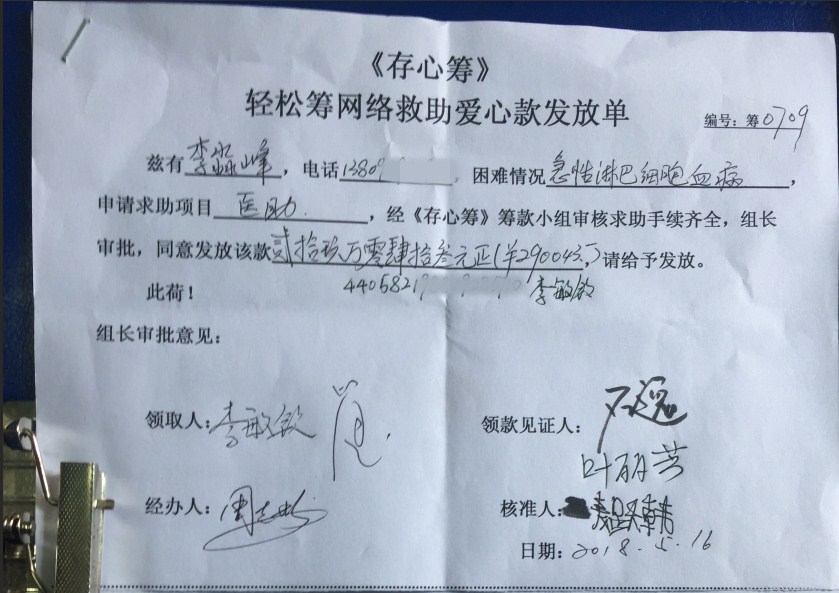 《存心筹》
轻松筹网络救助爱心款发放单
编号：筹0709
兹有李淼峰，电话13809，困难情况急性淋巴细胞血病，
申请求助项目医助，经《存心筹》筹款小组审核求助手续齐全，组长
审批，同意发放该款贰拾玖万零肆拾叁元正(￥290043.)请给予发放。
此荷！
4405821 李敏銮
组长审批意见：
领取人：李敏銮
领款见证人：
叶丽芳
经办人：周
核准人：
日期：2018.5.16